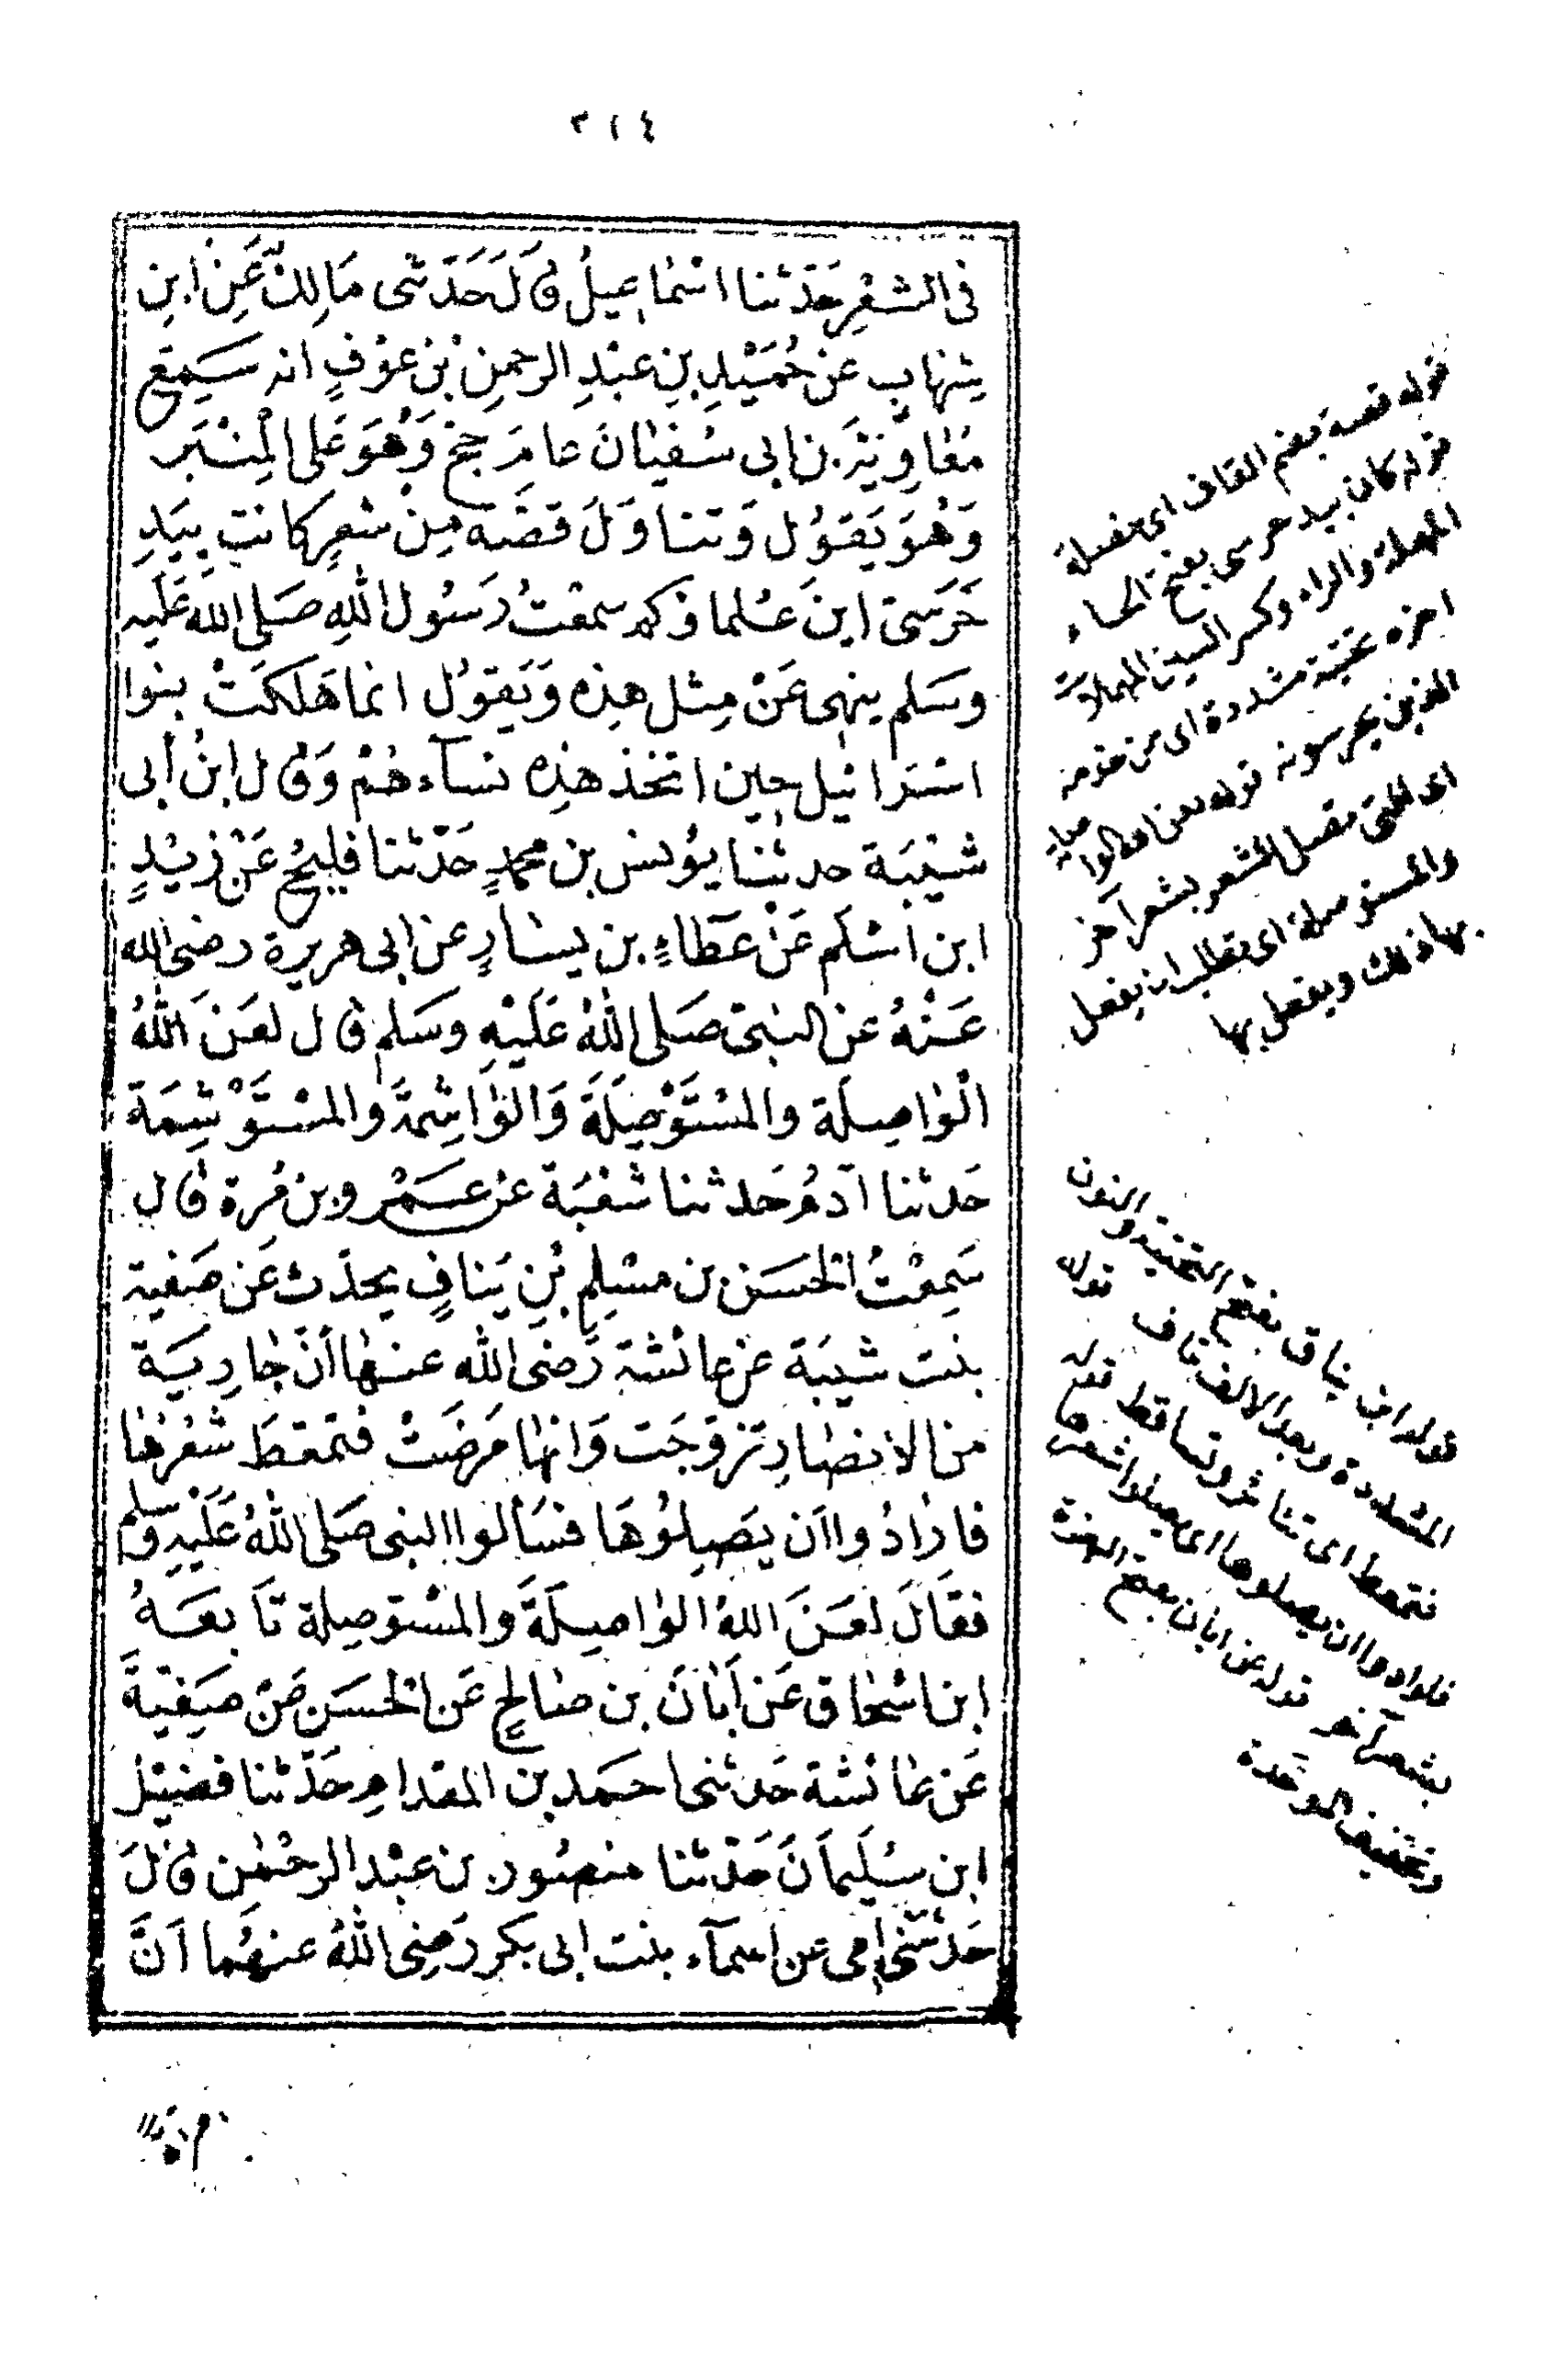 ٣١٤
في الشعر حدثنا اسماعيل قال حدثني مالك عن ابن
شهاب عن حميد بن عبد الرحمن بن عوف انه سمع
معاوية بن ابي سفيان عام حج وهو على المنبر
وهو يقول وتناول قصة من شعر كانت بيد
حرسي اين علماؤكم سمعت رسول الله صلى الله عليه
وسلم ينهى عن مثل هذه ويقول انما هلكت بنوا
اسرائيل حين اتخذ هذه نساءهم وقال ابن أبي
شيبة حدثنا يونس بن محمد حدثنا فليح عن زيد
ابن اسلم عن عطاء بن يسار عن ابي هريرة رضي الله
عنه عن النبي صلى الله عليه وسلم قال لعن الله
الواصلة والمستوصلة والواشمة والمستوشمة
حدثنا آدم حدثنا شعبة عن عمرو بن مرة قال
سمعت الحسن بن مسلم بن يناق يحدث عن صفية
بنت شيبة عن عائشة رضي الله عنها أن جارية
من الانصار تزوجت وانها مرضت فتمعط شعرها
فارادوا ان يصلوها فسألوا النبي صلى الله عليه وسلم
فقال لعن الله الواصلة والمستوصلة تابعه
ابن اسحاق عن أبان بن صالح عن الحسن عن صفية
عن عائشة حدثني احمد بن المقدام حدثنا فضيل
ابن سليمان حدثنا منصور بن عبد الرحمن قال
حدثتني امي عن اسماء بنت ابي بكر رضي الله عنهما ان
قوله قصة بضم القاف اى خصلة
قوله كان بيد حرسي بفتح الحاء
المهملة والراء وكسر السين المهملات
اخره تحتية مشددة اى من قومه
الذين يحرسونه قوله لعن الله الواصلة
اى التى تصل الشعر بشعر آخر
والمستوصلة اى تطلب ان يفعل
بها ذلك ويفعل بها
قوله ابن يناق بفتح التحتية والنون
المشددة وبعد الالف قاف قوله
فتمعط اى تناثر وتساقط قوله
فارادوا ان يصلوها اى يصلوا شعرها
بشعر آخر قوله عن ابان بفتح الهمزة
وتخفيف الموحدة